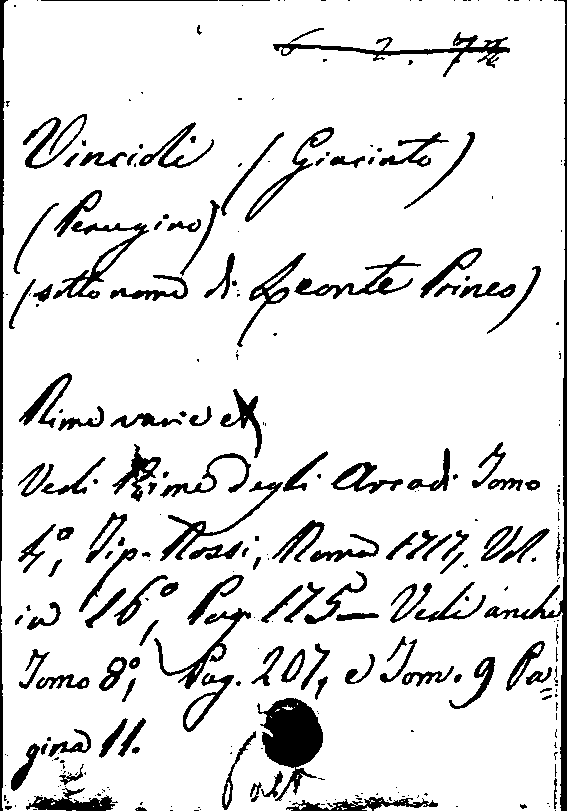 6. 2. 72
Vincioli (Giacinto)
(Perugino)
(sotto nome di Leonte Prineo)
Rime varie
Vedi Rime degli Arcadi Tomo
4°, Tip. Rossi, Roma 1717, Vol.
in 16°, Pag. 175 — Vedi anche
Tomo 8°, Pag. 207, e Tom. 9 Pa=
gina 11.